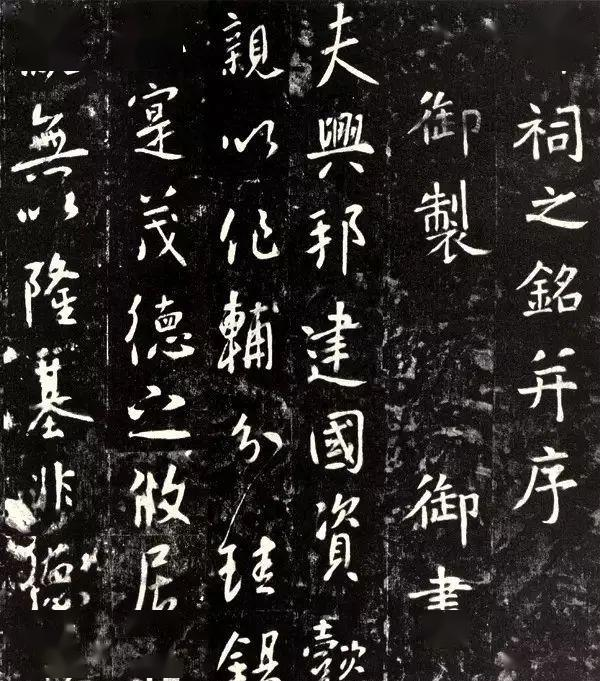 祠之銘并序
御製 御書
夫興邦建國資懿
親以作輔分珪錫
寔茂德之攸居
無以隆基非德